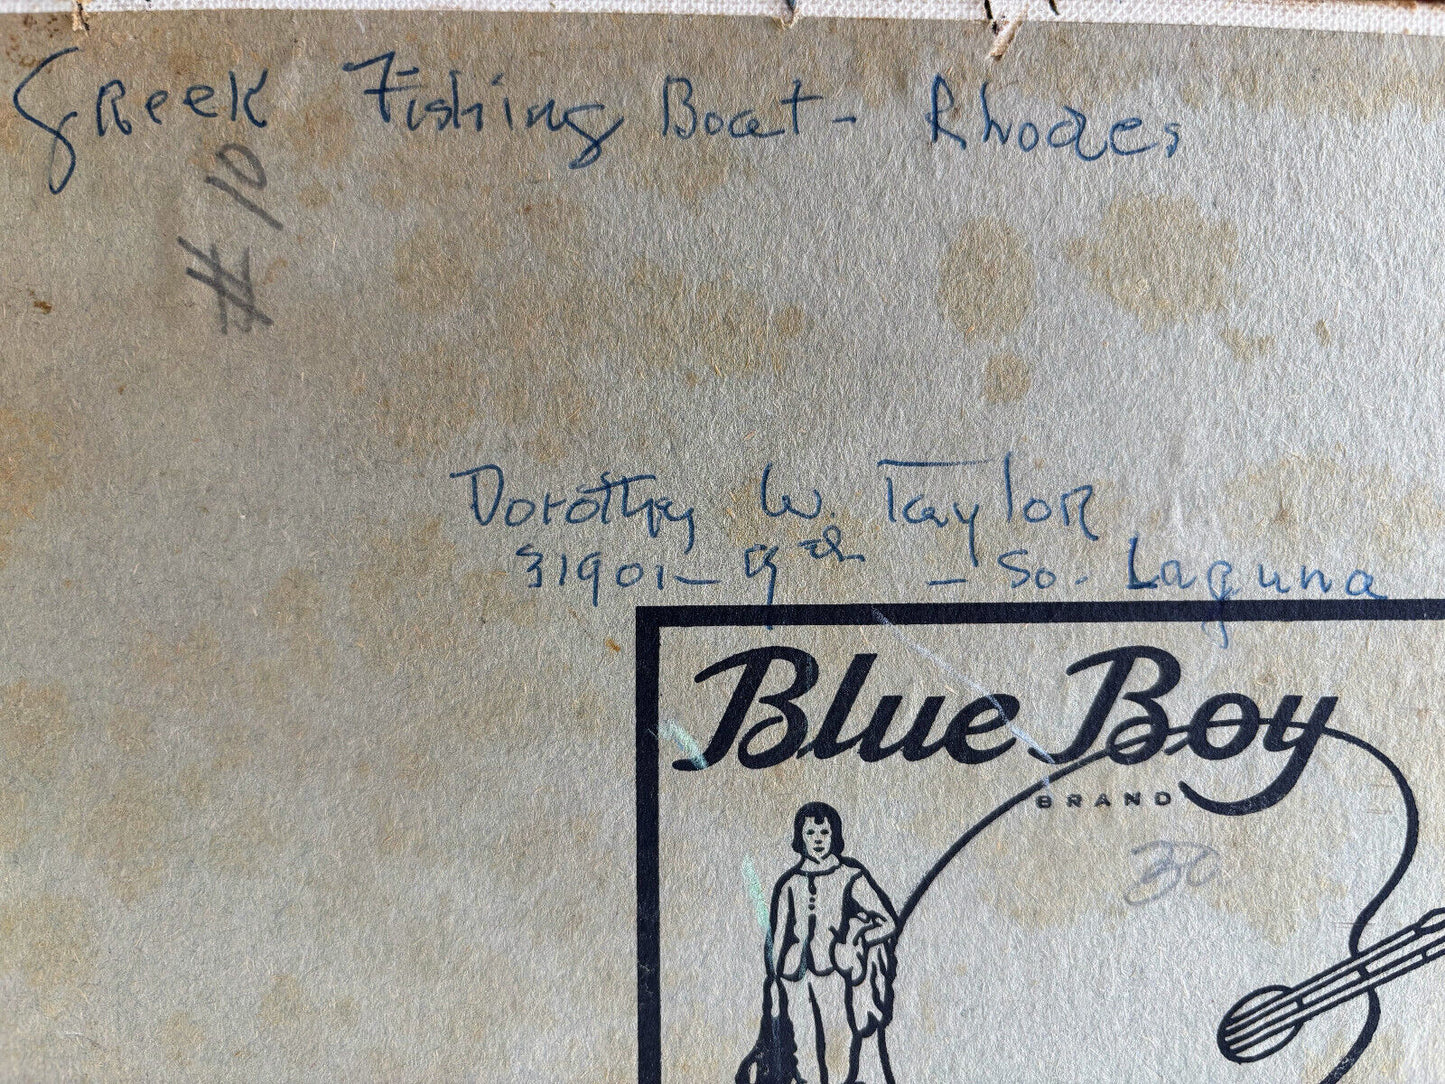 Greek Fishing Boat - Rhodes
# 10
Dorothy W. Taylor
31901 - 9th - So. Laguna
Blue Boy
BRAND
30